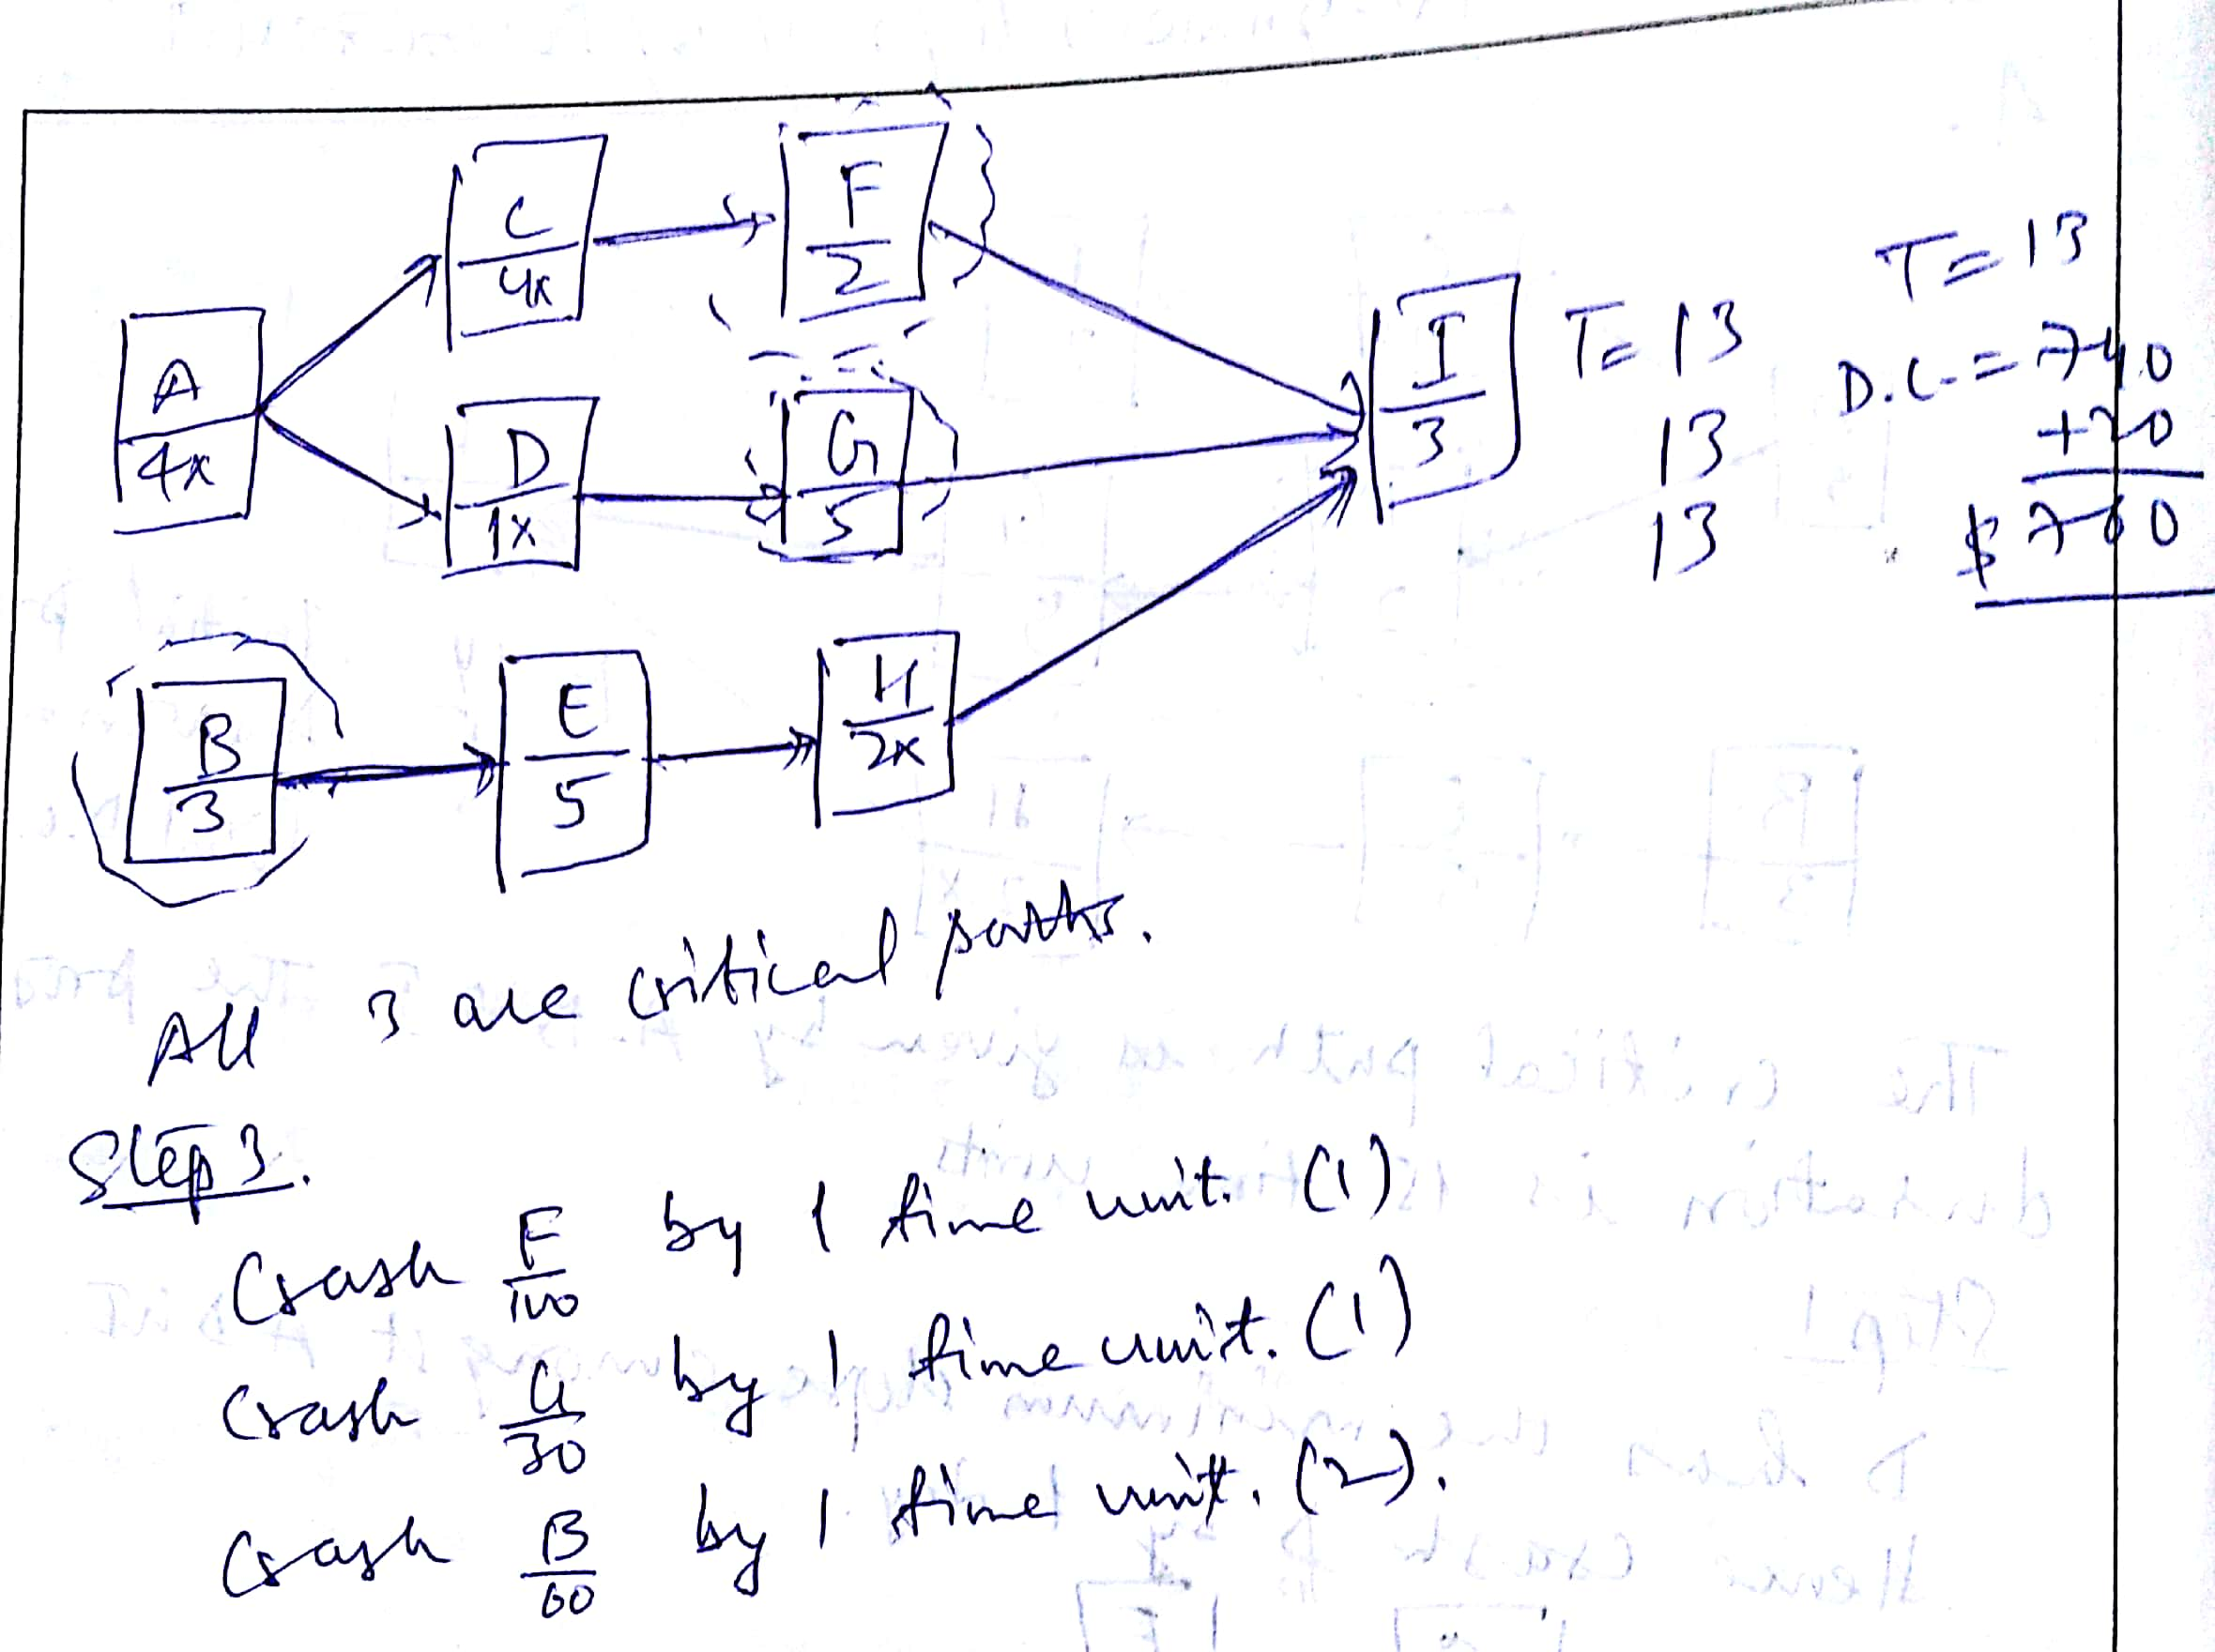 C
4x
F
2
A
4x
D
1x
G
5
I
3
T = 13
13
13
T = 13
D.C. = 740
+20
$ 760
B
3
E
5
H
2x
All 3 are critical paths.
Step 3.
Crash F/100 by 1 time unit. (1)
Crash G/30 by 1 time unit. (1)
Crash B/60 by 1 time unit. (2).